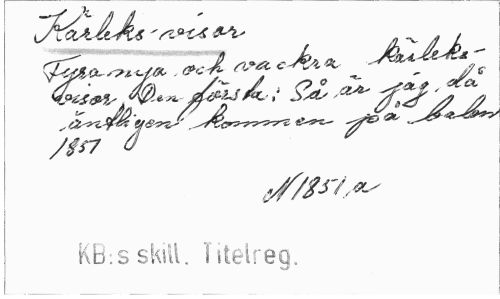 Kärleks-visor
Fyra nya och vackra kärleks-
visor. Den första: Så är jag då
äntligen kommen på balen
1851
N 1851, a
KB:s skill. Titelreg.